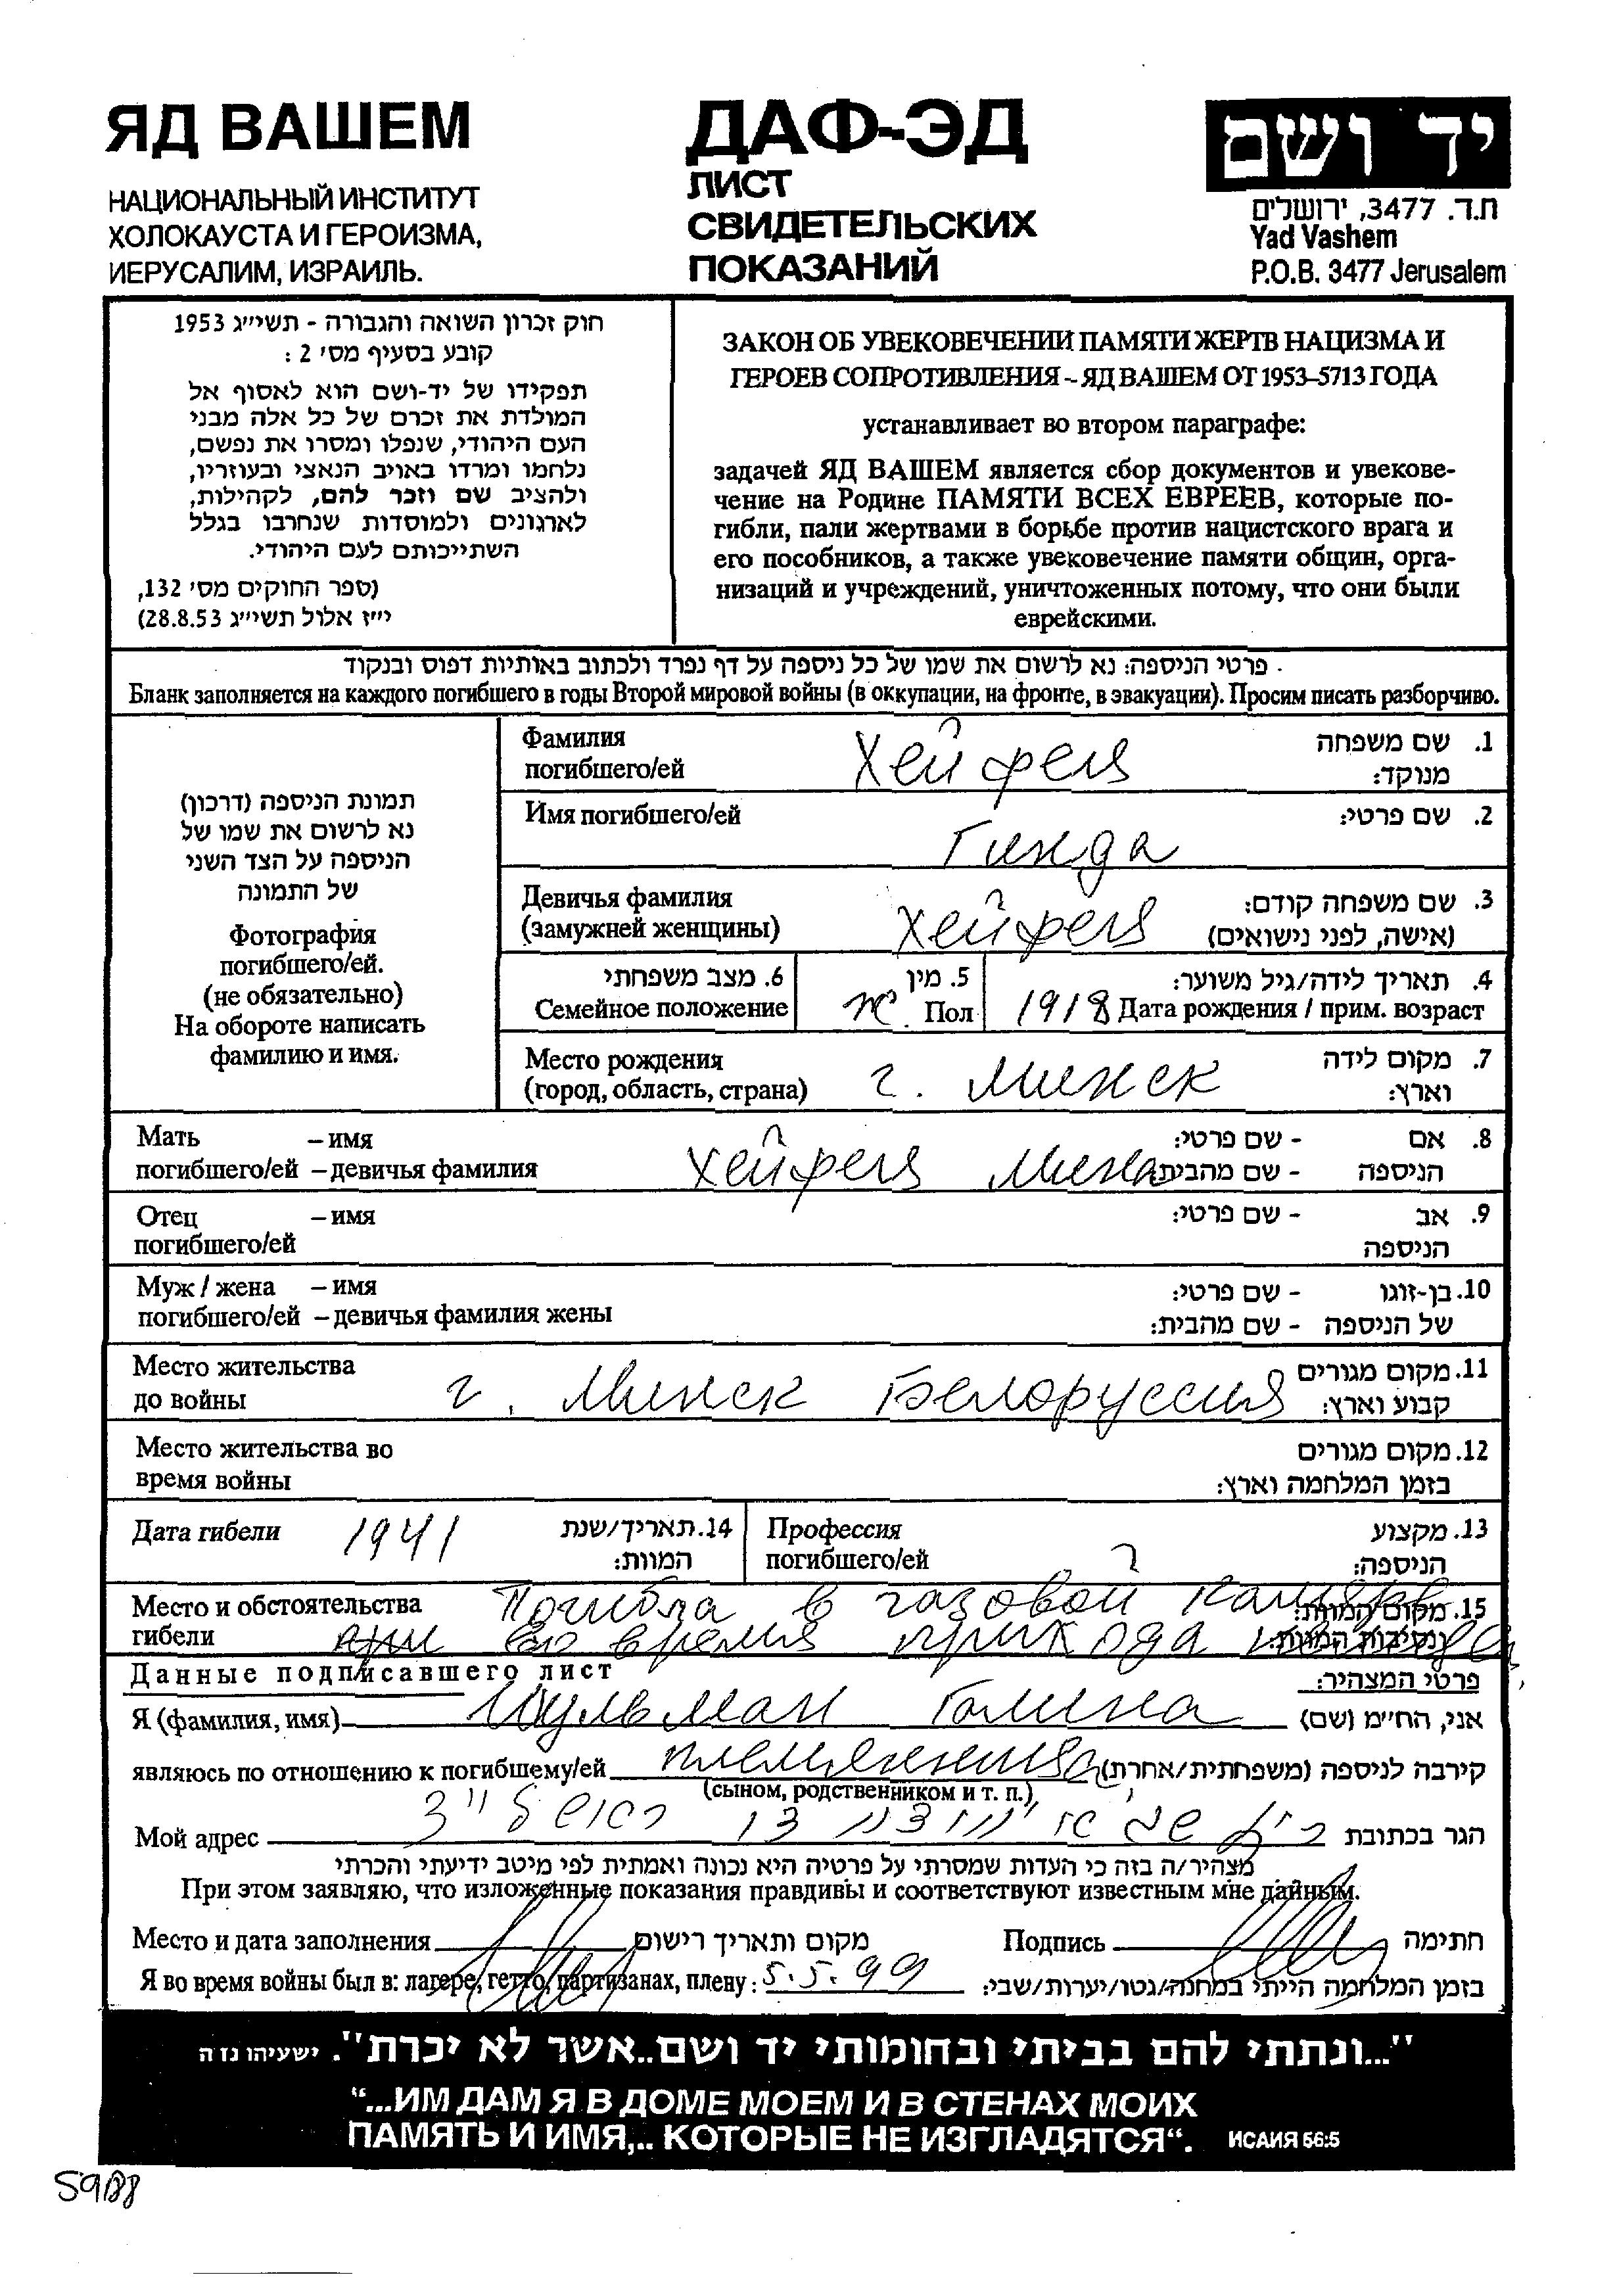 ЯД ВАШЕМ
НАЦИОНАЛЬНЫЙ ИНСТИТУТ
ХОЛОКАУСТА И ГЕРОИЗМА,
ИЕРУСАЛИМ, ИЗРАИЛЬ.
ДАФ-ЭД
ЛИСТ
СВИДЕТЕЛЬСКИХ
ПОКАЗАНИЙ
יד ושם
ת.ד. 3477, ירושלים
Yad Vashem
P.O.B. 3477 Jerusalem
חוק זכרון השואה והגבורה - תשי״ג 1953
קובע בסעיף מס׳ 2 :
תפקידו של יד-ושם הוא לאסוף אל
המולדת את זכרם של כל אלה מבני
העם היהודי, שנפלו ומסרו את נפשם,
נלחמו ומרדו באויב הנאצי ובעוזריו,
ולהציב שם וזכר להם, לקהילות,
לארגונים ולמוסדות שנחרבו בגלל
השתייכותם לעם היהודי.
(ספר החוקים מס׳ 132,
י״ז אלול תשי״ג 28.8.53)
ЗАКОН ОБ УВЕКОВЕЧЕНИИ ПАМЯТИ ЖЕРТВ НАЦИЗМА И
ГЕРОЕВ СОПРОТИВЛЕНИЯ – ЯД ВАШЕМ ОТ 1953–5713 ГОДА
устанавливает во втором параграфе:
задачей ЯД ВАШЕМ является сбор документов и увекове-
чение на Родине ПАМЯТИ ВСЕХ ЕВРЕЕВ, которые по-
гибли, пали жертвами в борьбе против нацистского врага и
его пособников, а также увековечение памяти общин, орга-
низаций и учреждений, уничтоженных потому, что они были
еврейскими.
פרטי הניספה: נא לרשום את שמו של כל ניספה על דף נפרד ולכתוב באותיות דפוס ובנקוד
Бланк заполняется на каждого погибшего в годы Второй мировой войны (в оккупации, на фронте, в эвакуации). Просим писать разборчиво.
תמונת הניספה (דרכון)
נא לרשום את שמו של
הניספה על הצד השני
של התמונה
Фотография
погибшего/ей.
(не обязательно)
На обороте написать
фамилию и имя.
Фамилия Хейфец 1. שם משפחה
погибшего/ей מנוקד:
Имя погибшего/ей 2. שם פרטי:
Гинда
Девичья фамилия 3. שם משפחה קודם:
(замужней женщины) Хейфец (אישה, לפני נישואים)
6. מצב משפחתי 5. מין 4. תאריך לידה/גיל משוער:
Семейное положение ж. Пол 1918 Дата рождения / прим. возраст
Место рождения 7. מקום לידה
(город, область, страна) г. Минск וארץ:
Мать – имя 8. אם - שם פרטי:
погибшего/ей – девичья фамилия Хейфец Мина הניספה - שם מהבית:
Отец – имя 9. אב - שם פרטי:
погибшего/ей הניספה
Муж / жена – имя 10. בן-זוגו - שם פרטי:
погибшего/ей – девичья фамилия жены של הניספה - שם מהבית:
Место жительства 11. מקום מגורים
до войны г. Минск Белоруссия קבוע וארץ:
Место жительства во 12. מקום מגורים
время войны בזמן המלחמה וארץ:
Дата гибели 1941 14. תאריך/שנת
המוות:
Профессия 13. מקצוע
погибшего/ей הניספה:
Место и обстоятельства Погибла в газовой камере 15. מקום המוות:
гибели во время прихода ונסיבות המוות:
Данные подписавшего лист פרטי המצהיר:
Я (фамилия, имя) Шульман Галина אני, הח״מ (שם)
являюсь по отношению к погибшему/ей племянница קירבה לניספה (משפחתית/אחרת)
(сыном, родственником и т. п.)
Мой адрес הגר בכתובת
מצהיר/ה בזה כי העדות שמסרתי על פרטיה היא נכונה ואמתית לפי מיטב ידיעתי והכרתי
При этом заявляю, что изложенные показания правдивы и соответствуют известным мне данным.
Место и дата заполнения מקום ותאריך רישום Подпись חתימה
Я во время войны был в: лагере, гетто, партизанах, плену: 5.5.99 בזמן המלחמה הייתי במחנה/גטו/יערות/שבי:
"...ונתתי להם בביתי ובחומותי יד ושם..אשר לא יכרת". ישעיהו נז ה
“...ИМ ДАМ Я В ДОМЕ МОЕМ И В СТЕНАХ МОИХ
ПАМЯТЬ И ИМЯ,.. КОТОРЫЕ НЕ ИЗГЛАДЯТСЯ“. ИСАИЯ 56:5